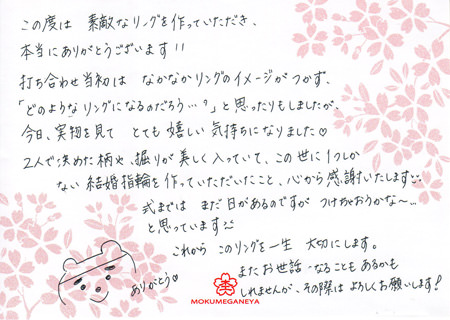 この度は 素敵なリングを作っていただき、
本当にありがとうございます!!
打ち合わせ当初は なかなかリングのイメージがつかず、
「どのようなリングになるのだろう…?」と思ったりもしましたが、
今日、実物を見て とても嬉しい気持ちになりました♡
2人で決めた柄や、掘りが美しく入っていて、この世に1つしか
ない結婚指輪を作っていただいたこと、心から感謝いたします
式までは まだ日があるのですが つけちゃおうかな〜…
と思っています
これから このリングを一生 大切にします。
またお世話になることもあるかも
しれませんが、その際は よろしくお願いします!
ありがとう♡
MOKUMEGANEYA